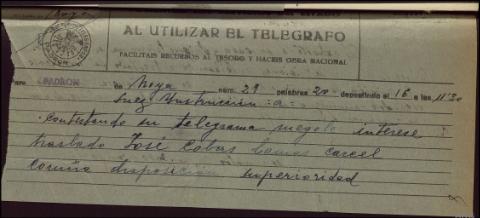 AL UTILIZAR EL TELEGRAFO
FACILITAIS RECURSOS AL TESORO Y HACEIS OBRA NACIONAL
PADRON de Noya núm. 29 palabras 20 depositado el 16 a las 11'30
Juez Instrucción = a =
contestando su telegrama ruegole interese
traslado José Cobas Camas carcel
Coruña disposición superioridad